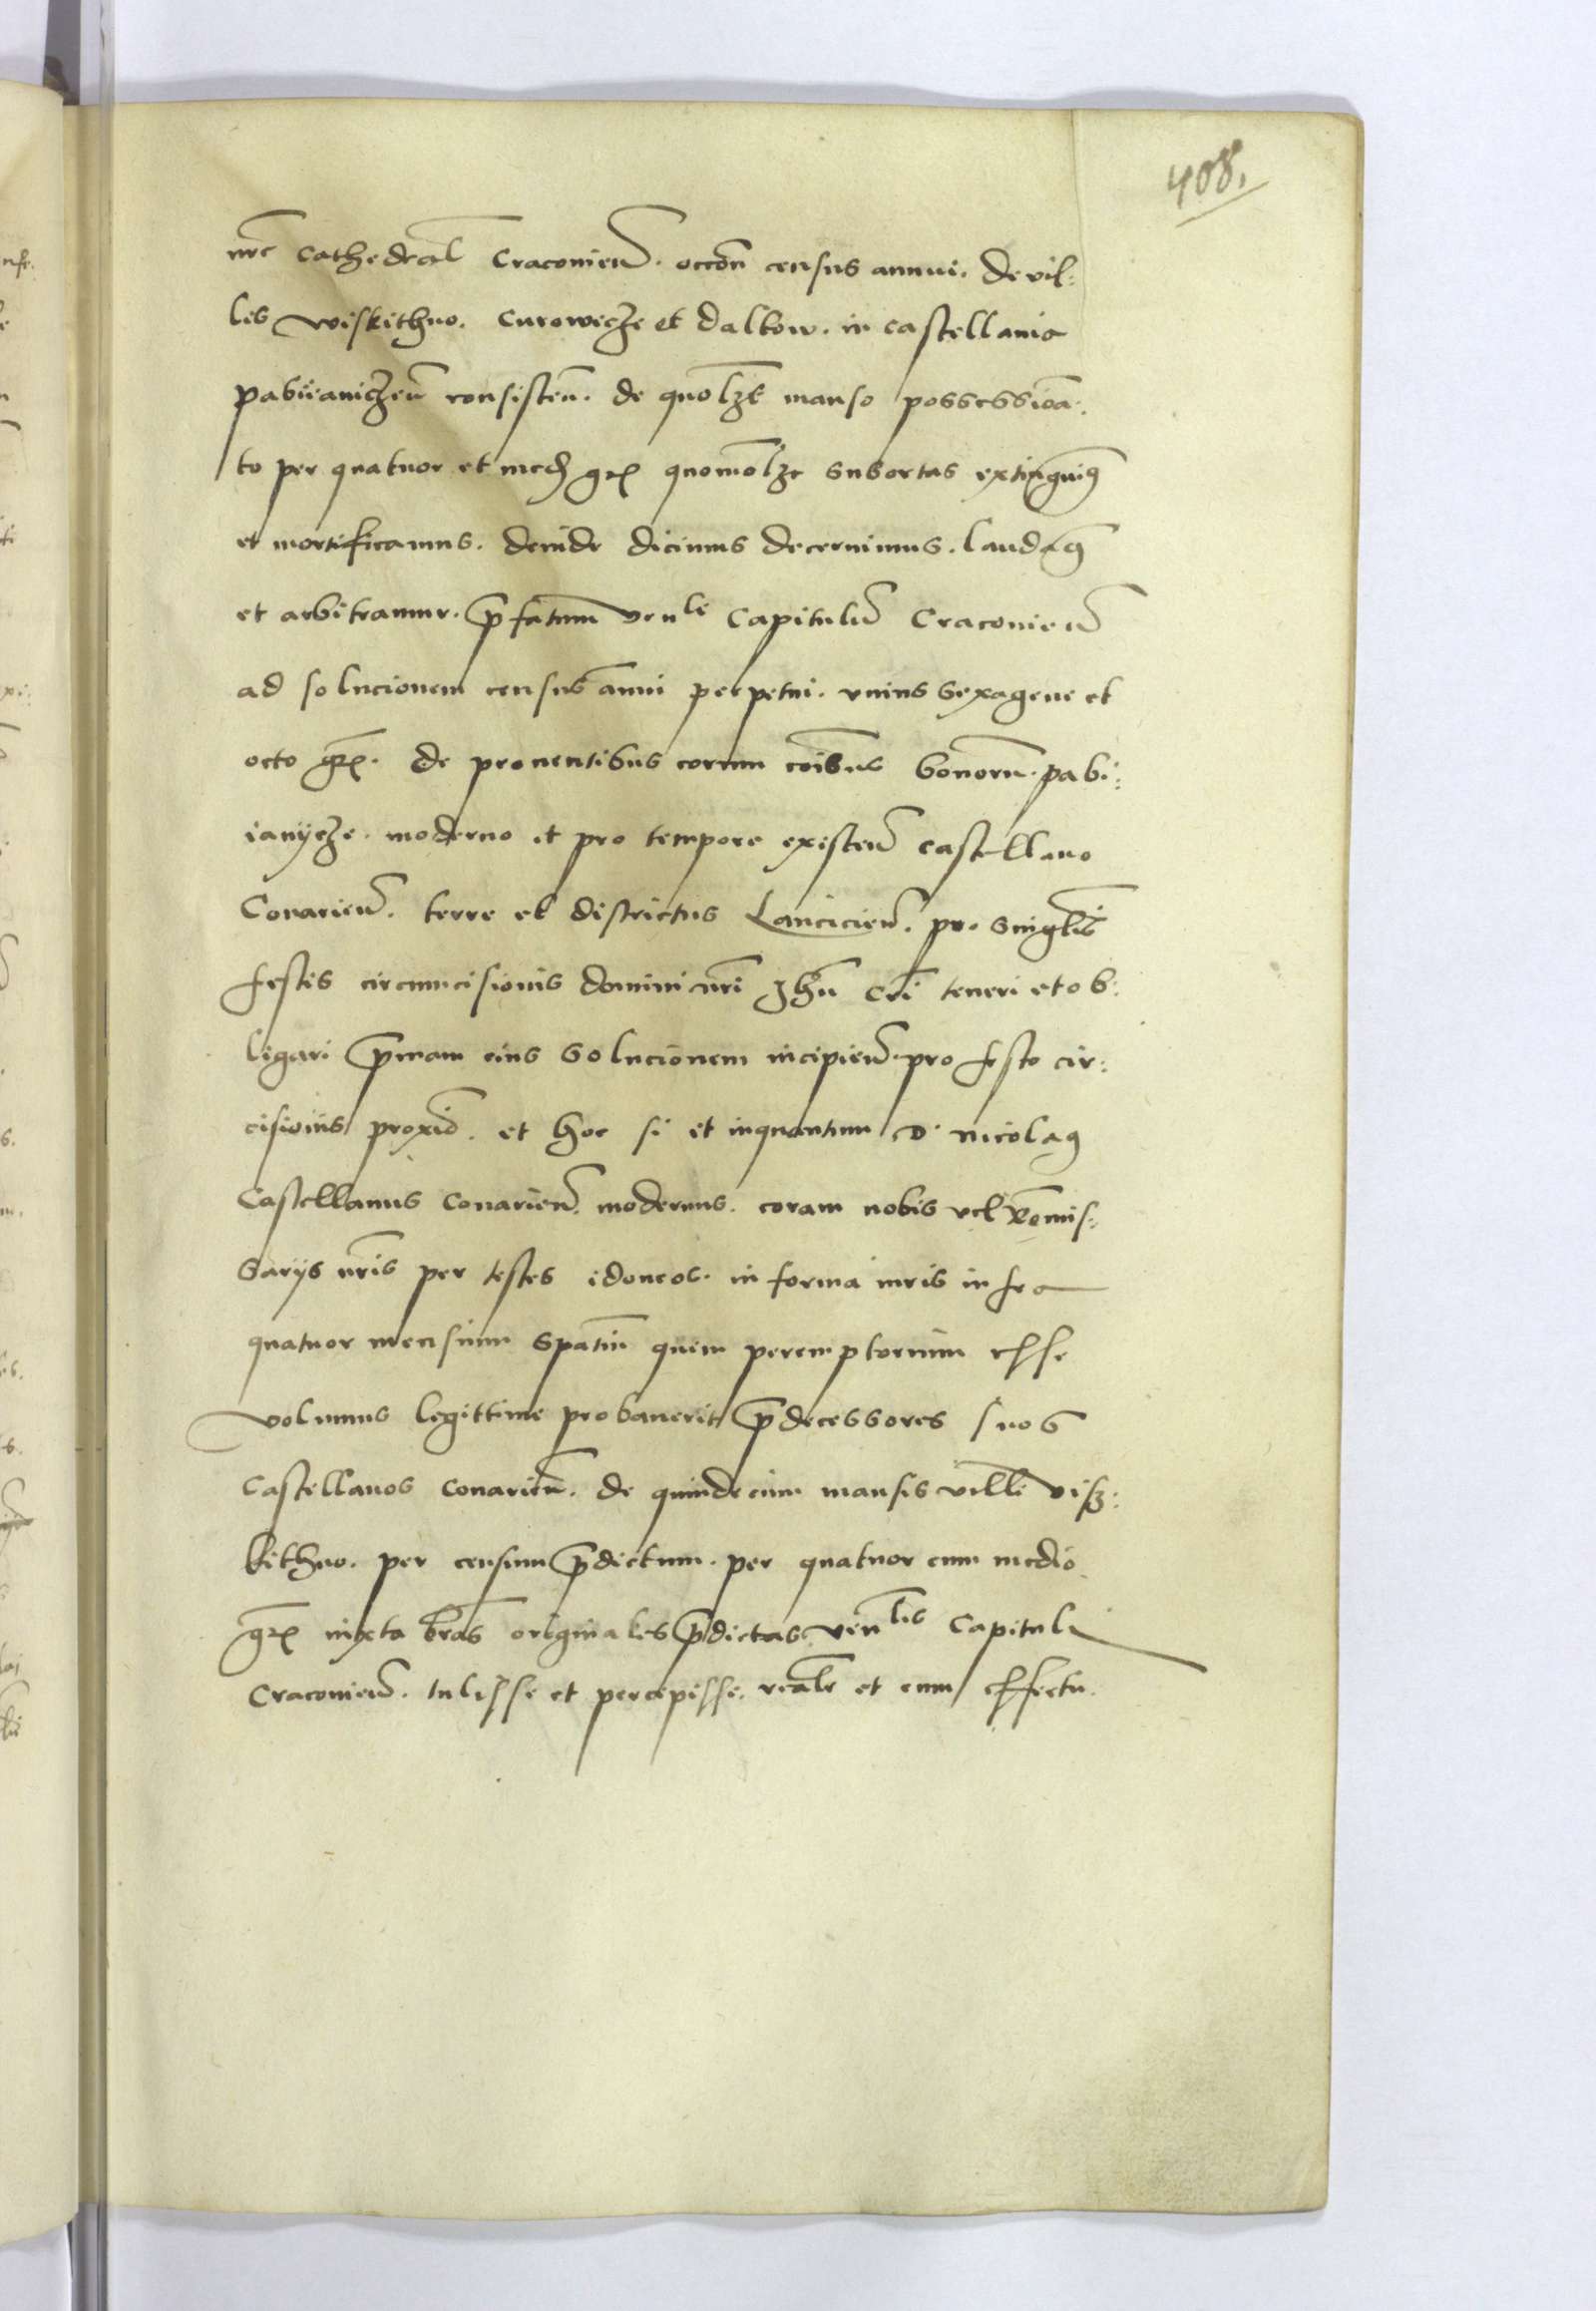 408.
nr̄e Cathedral̄ Cracovien̄. occōn census annui. de vil:
lis wiskithno. Curowicze et Daltow. in castellania
pabiianiczen̄ consisten̄. de quol̄zt manso possessiōa:
to per quatuor et med gr quomōlz subortas extinguim9
et mortificamus. deinde dicimus decernimus. laudam9
et arbitramur. p̄fatum venle Capitulū Cracovien̄
ad solucionem census anni perpetui. unius sexagene et
octo gr̄. de proventibus eorum cōibus bonorū. pabi:
ianÿcze. moderno et pro tempore existen̄ castellano
Conarien̄. terre et districtus Lancicien̄. pro singlis̄
festis circumcisionis domini nr̄i Jhū Cri̅ teneri et ob:
ligari p̄mam eius solucionem incipien̄. pro festo cir:
cisioīs proxiō. et hoc si et inquantum d. Nicola9
Castellanus Conarien̄. modernus. coram nobis vel com̄is:
sarijs nr̄is per testes idoneos. in forma iuris infra
quatuor mensium spatiū quem peremptorium esse
volumus legittime probaverit p̄decessores suos
Castellanos Conarien̄. de quindecim mansis ville visz:
kithno. per censum p̄dictum. per quatuor cum medio
gr̄ iuxta l̄ras originales p̄dictas venlis Capituli
Cracovien̄. tulisse et percepisse. realr̄ et cum effectu.